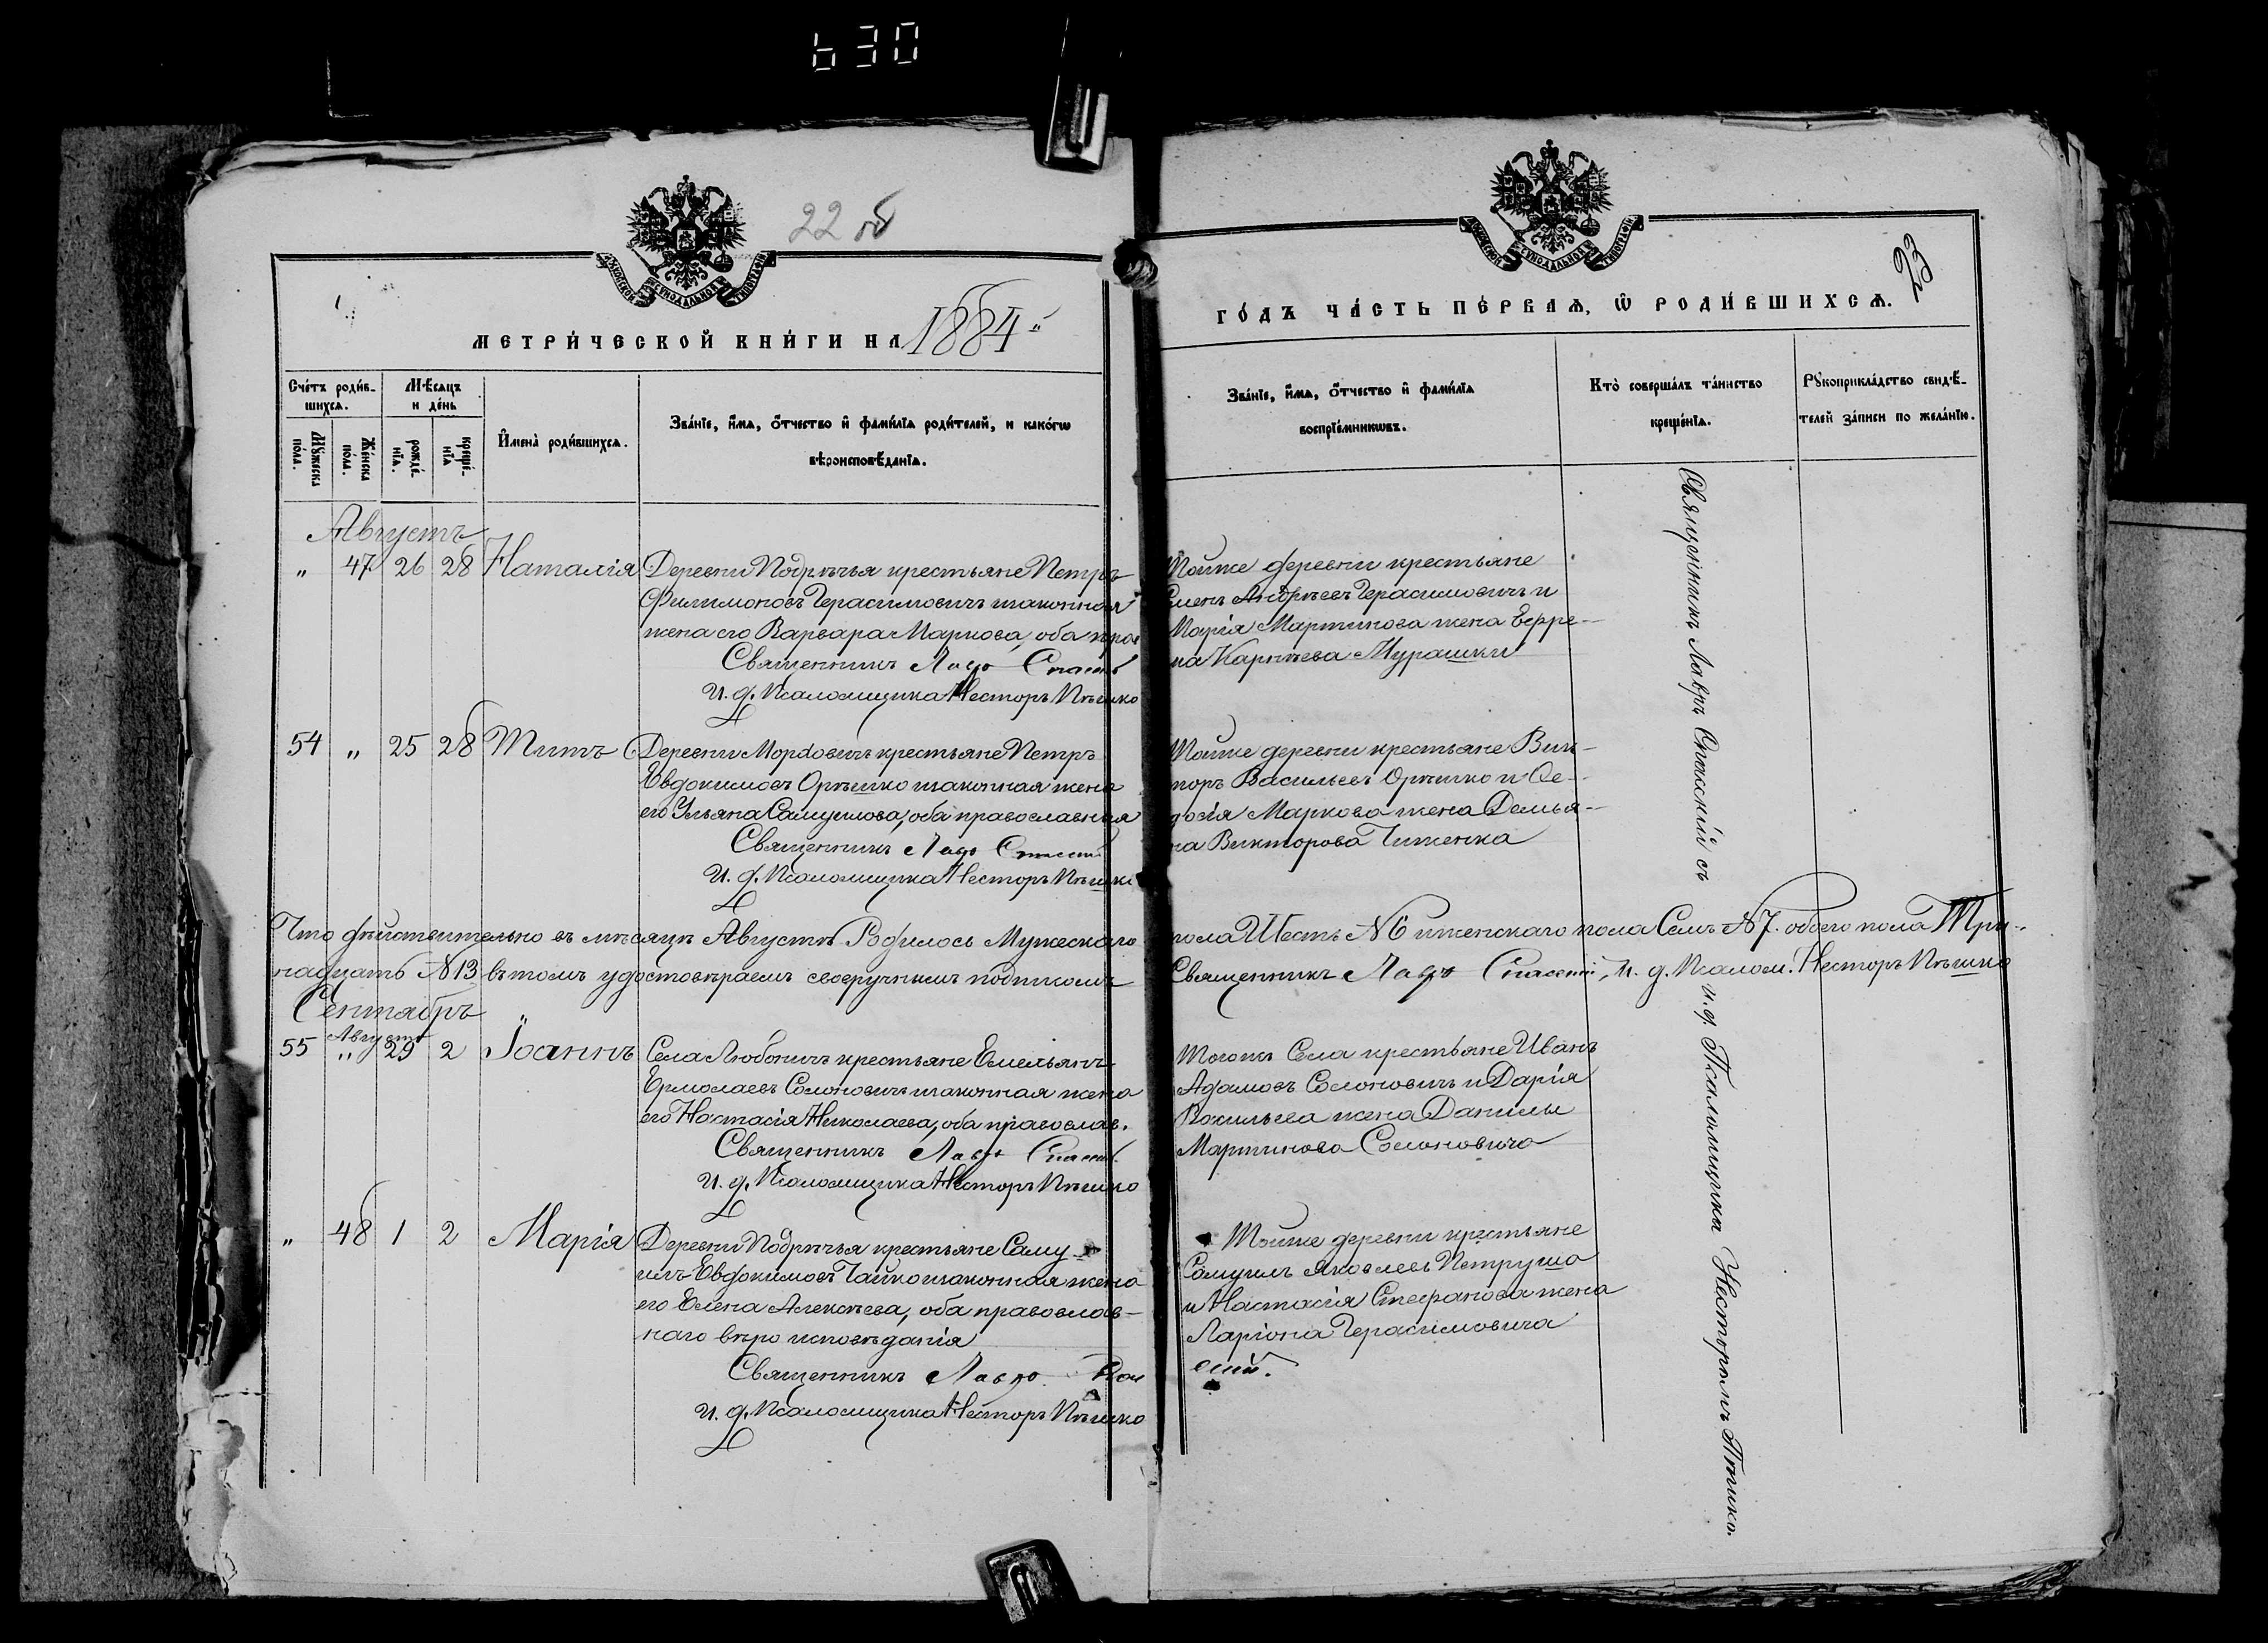 630
22 об
23
МЕТРИ́ЧЕСКОЙ КНИ́ГИ НА 1884
ГО́ДЪ ЧА́СТЬ ПЕ́РВАѦ, Ѡ҆ РОДИ́ВШИХСѦ.
Сче́тъ роди́в-
шихсѧ.
Мꙋ́жеска
по́ла.
Же́нска
по́ла.
Мѣ́сѧцъ
и де́нь
рожде́-
нїѧ.
креще́-
нїѧ
И҆мена̀ роди́вшихсѧ.
Зва́нїе, и҆́мѧ, ѻ҆́тчество и҆ фами́лїѧ роди́телей, и како́гѡ
вѣроисповѣ́данїѧ.
Зва́нїе, и҆́мѧ, ѻ҆́тчество и҆ фами́лїѧ
воспрїе́мникѡвъ.
Кто̀ соверша́лъ та́инство
креще́нїѧ.
Рꙋкоприкла́дство свидѣ́-
телей за́писи по жела́нїю.
Августъ
" 47 26 28 Наталія Деревни Подрѣчья крестьяне Петръ
Филимоновъ Герасимовичъ и законная
жена его Варвара Маркова, оба прав
Священникъ Лавръ
И. д. Псаломщика Несторъ Пѣшко
Тойже деревни крестьяне
Андреевъ Герасимовичъ и
Марія Мартинова жена Ефре-
ма Карнѣева Мурашки
54 " 25 28 Титъ Деревни Морховичъ крестьяне Петръ
Евдокимовъ Орѣшко и законная жена
его Ульяна Самуилова, оба православныя
Священникъ Лавръ
И. д. Псаломщика Несторъ Пѣшко
Тойже деревни крестьяне Вик-
торъ Васильевъ Орѣшко и Ѳе-
досія Маркова жена Демья-
на Викторова
Что дѣйствительно въ мѣсяцѣ Августѣ Родилось Мужескаго пола Шесть №6 и женскаго пола Семь №7. обоего пола Три-
надцать №13 въ томъ удостовѣряемъ своеручнымъ подписомъ Священникъ Лавръ Спасскій, И. д. Псалом. Несторъ Пѣшко
Сентябрь
Августъ
55 " 29 2 Іоаннъ Села Любоничъ крестьяне Емельянъ
Ермолаевъ Солоновичъ и законная жена
его Настасія Николаева, оба православ.
Священникъ Лавръ
И. д. Псаломщика Несторъ Пѣшко
Тогожъ Села крестьяне Иванъ
Адамовъ Солоновичъ и Дарія
Васильева жена Данилы
Мартинова Солоновича
" 48 1 2 Марія Деревни Подрѣчья крестьяне Саму-
илъ Евдокимовъ Чайко и законная жена
его Елена Алексѣева, оба православ-
наго вѣроисповѣданія
Священникъ Лавръ
И. д. Псаломщика Несторъ Пѣшко
Тойже деревни крестьяне
Самуилъ Яковлевъ Петруша
и Настасія Стефанова жена
Ларіона Герасимовича
Священникъ Лавръ Спасскій съ
и. д. Псаломщика Несторомъ Пѣшко.